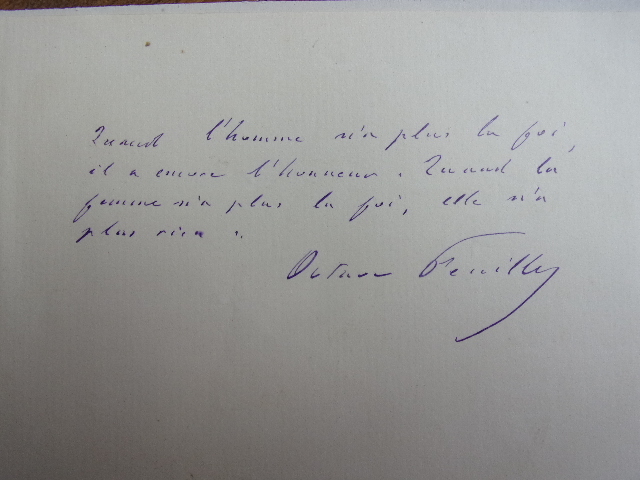 Quand l'homme n'a plus la foi,
il a encore l'honneur. Quand la
femme n'a plus la foi, elle n'a
plus rien.
Octave Feuillet